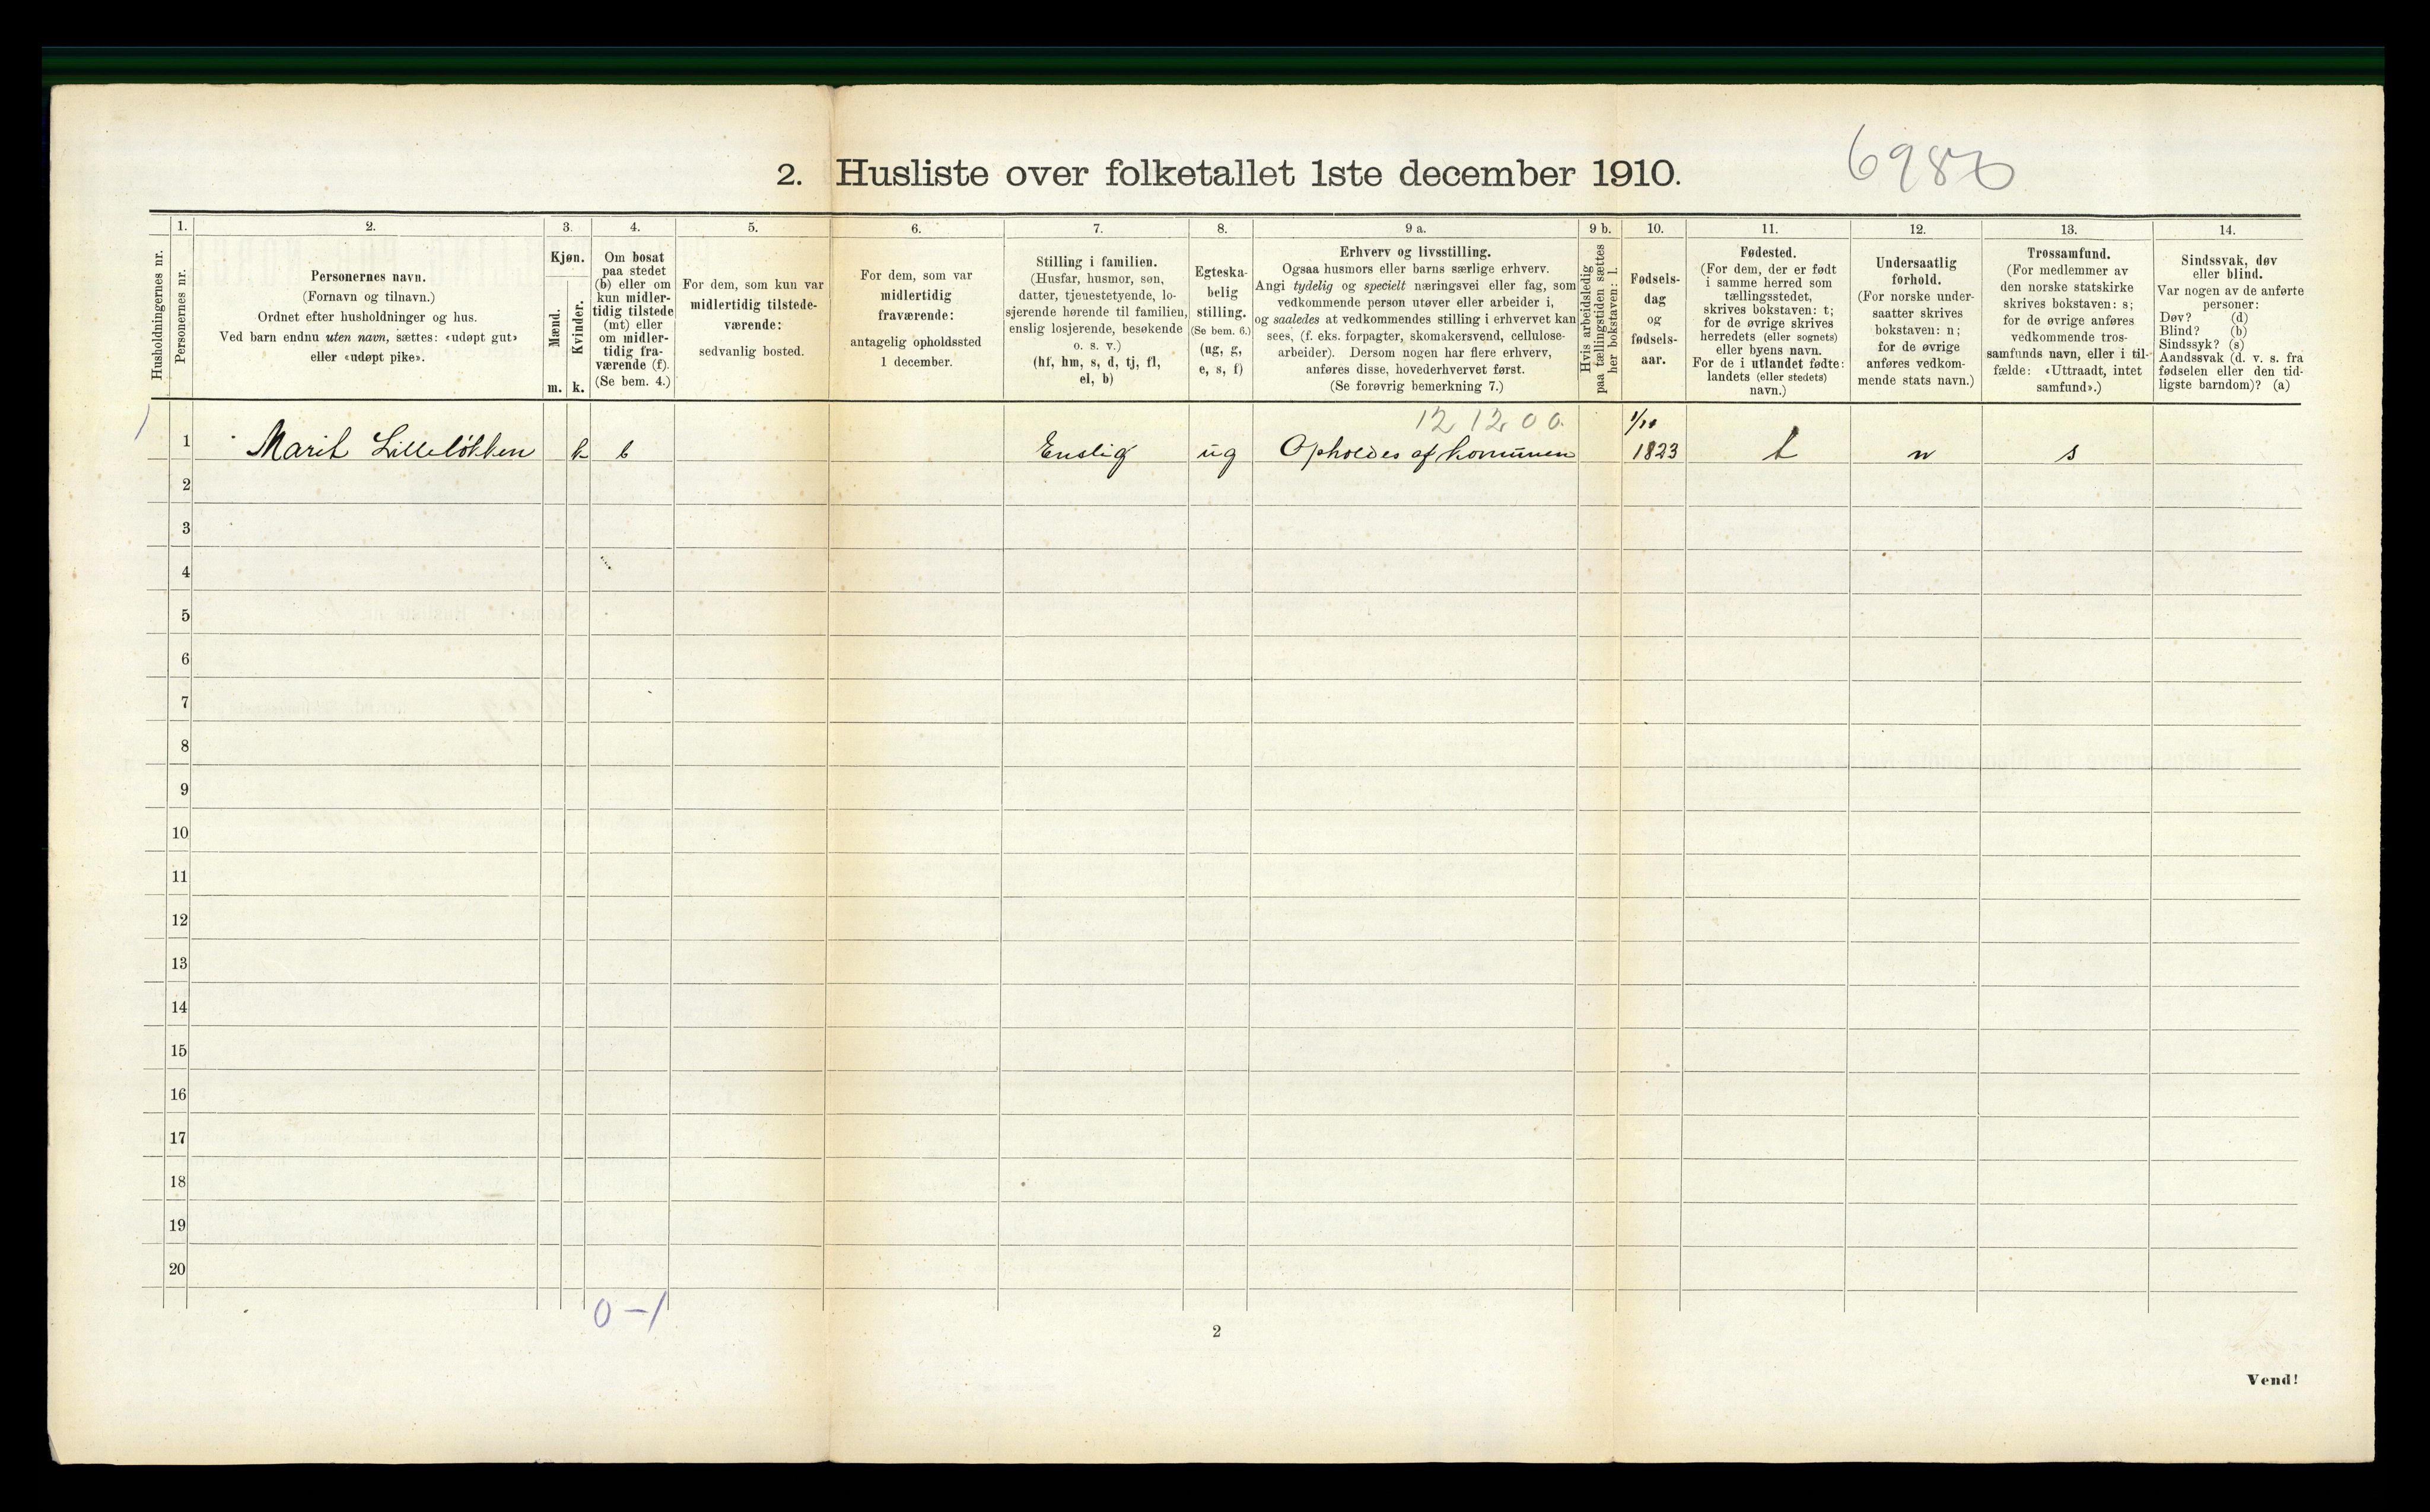 2. Husliste over folketallet 1ste december 1910.
Husholdningernes nr.
1.
Personernes nr.
2.
Personernes navn.
(Fornavn og tilnavn.)
Ordnet efter husholdninger og hus.
Ved barn endnu uten navn, sættes: «udøpt gut»
eller «udøpt pike».
3.
Kjøn.
Mænd.
m.
Kvinder.
k.
4.
Om bosat
paa stedet
(b) eller om
kun midler-
tidig tilstede
(mt) eller
om midler-
tidig fra-
værende (f).
(Se bem. 4.)
5.
For dem, som kun var
midlertidig tilstede-
værende:
sedvanlig bosted.
6.
For dem, som var
midlertidig
fraværende:
antagelig opholdssted
1 december.
7.
Stilling i familien.
(Husfar, husmor, søn,
datter, tjenestetyende, lo-
sjerende hørende til familien,
enslig losjerende, besøkende
o. s. v.)
(hf, hm, s, d, tj, fl,
el, b)
8.
Egteska-
belig
stilling.
(Se bem. 6.)
(ug, g,
e, s, f)
9 a.
Erhverv og livsstilling.
Ogsaa husmors eller barns særlige erhverv.
Angi tydelig og specielt næringsvei eller fag, som
vedkommende person utøver eller arbeider i,
og saaledes at vedkommendes stilling i erhvervet kan
sees, (f. eks. forpagter, skomakersvend, cellulose-
arbeider). Dersom nogen har flere erhverv,
anføres disse, hovederhvervet først.
(Se forøvrig bemerkning 7.)
9 b.
Hvis arbeidsledig
paa tællingstiden sættes
her bokstaven: l.
10.
Fødsels-
dag
og
fødsels-
aar.
11.
Fødested.
(For dem, der er født
i samme herred som
tællingsstedet,
skrives bokstaven: t;
for de øvrige skrives
herredets (eller sognets)
eller byens navn.
For de i utlandet fødte:
landets (eller stedets)
navn.)
12.
Undersaatlig
forhold.
(For norske under-
saatter skrives
bokstaven: n;
for de øvrige
anføres vedkom-
mende stats navn.)
13.
Trossamfund.
(For medlemmer av
den norske statskirke
skrives bokstaven: s;
for de øvrige anføres
vedkommende tros-
samfunds navn, eller i til-
fælde: «Uttraadt, intet
samfund».)
14.
Sindssvak, døv
eller blind.
Var nogen av de anførte
personer:
Døv? (d)
Blind? (b)
Sindssyk? (s)
Aandssvak (d. v. s. fra
fødselen eller den tid-
ligste barndom)? (a)
12 12 0 0. 1/10
1 1 Marit Lilleløkken k b Enslig ug Opholdes af komunen 1823 t n s
2
3
4
5
6
7
8
9
10
11
12
13
14
15
16
17
18
19
20
0 - 1
2
Vend!